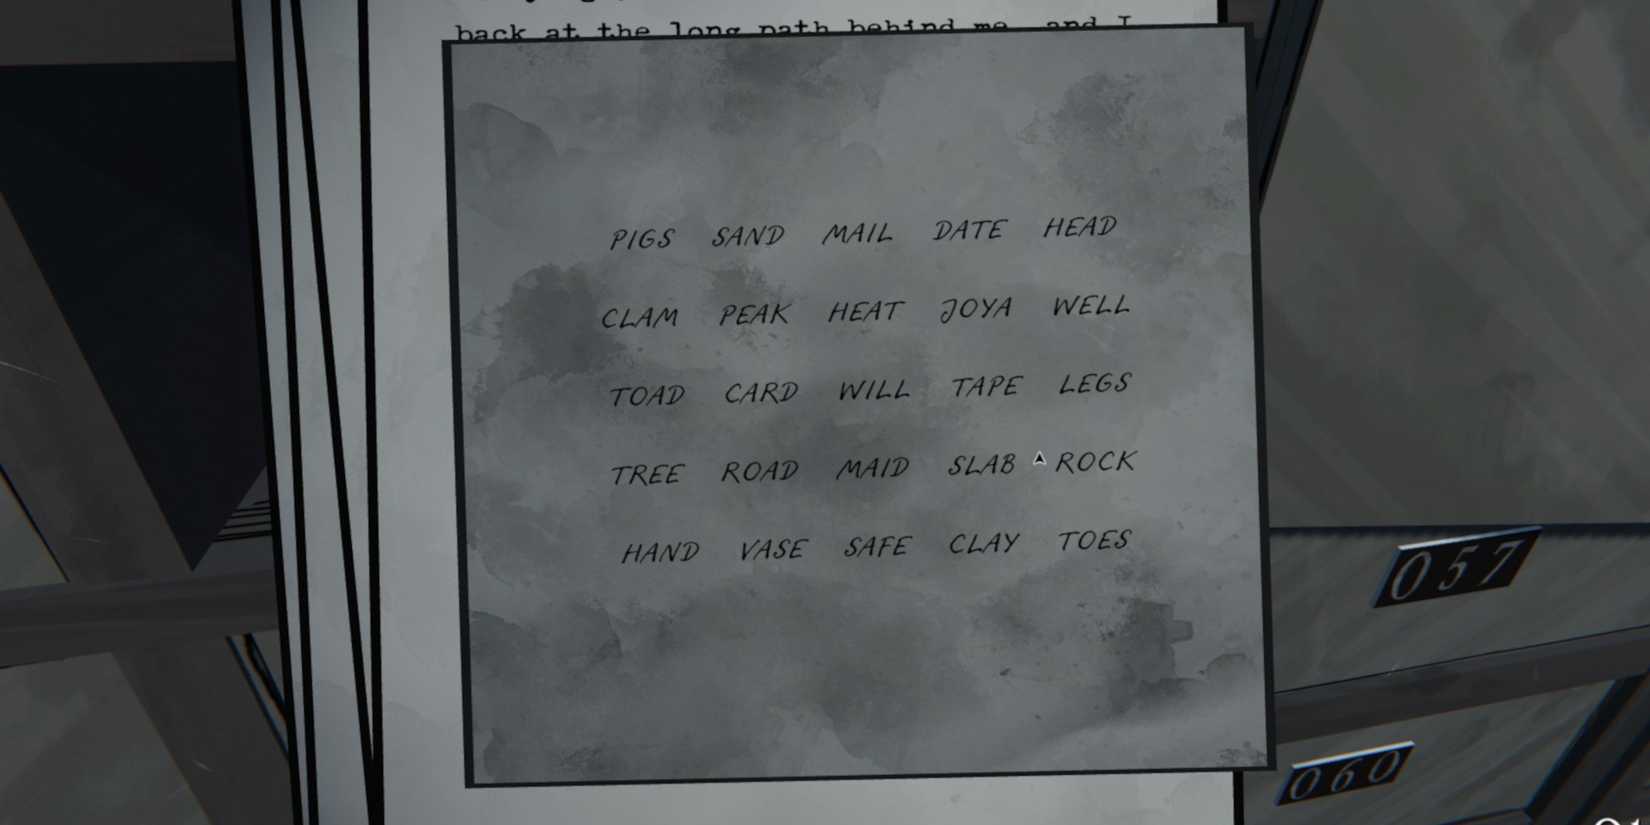 back at the long path behind me, and I
PIGS SAND MAIL DATE HEAD
CLAM PEAK HEAT JOYA WELL
TOAD CARD WILL TAPE LEGS
TREE ROAD MAID SLAB ROCK
HAND VASE SAFE CLAY TOES
057
060